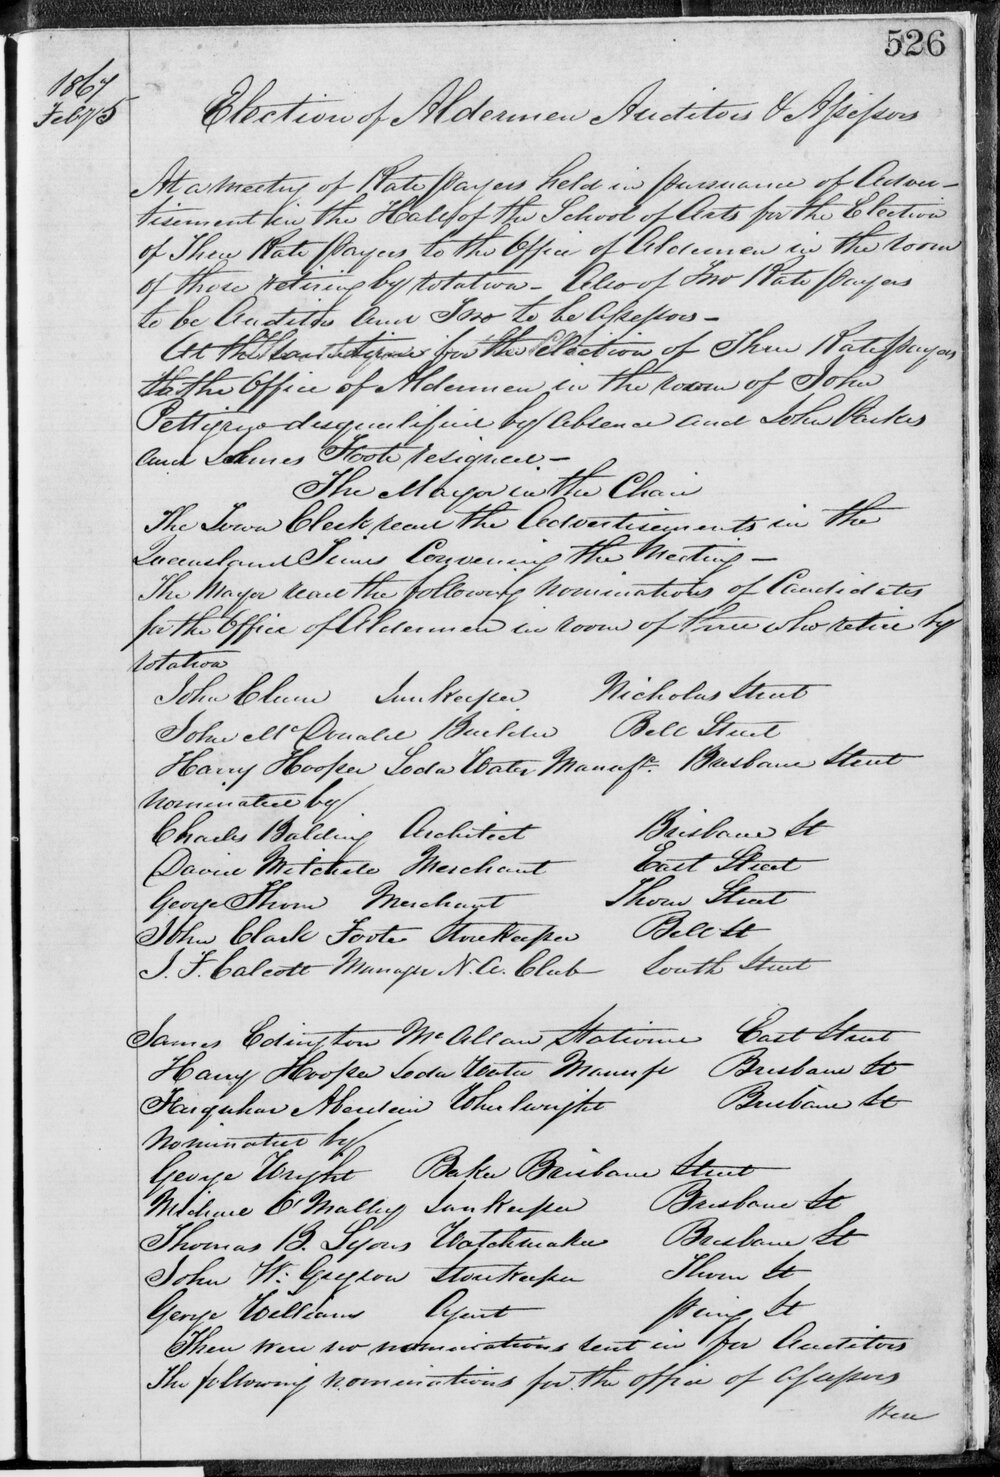 526
1867
Feby 5
Election of Aldermen Auditors & Assessors
At a meeting of Rate payers held in pursuance of Adver-
tisement in the Hall of the School of Arts for the Election
of Three Rate payers to the Office of Aldermen in the room
of those retiring by rotation - Also of Two Rate payers
to be Auditors and Two to be Assessors -
At the same time for the Election of Three Rate Payers
to the Office of Aldermen in the room of John
Pettigrew disqualified by Absence and John Parker
and James Foote resigned. -
The Mayor in the Chair
The Town Clerk read the Advertisements in the
Queensland Times Convening the Meeting -
The Mayor read the following nominations of Candidates
for the Office of Aldermen in room of three who retire by
rotation
John Clune Innkeeper Nicholas Street
John McDonald Builder Bell Street
Harry Hooper Soda Water Manufr. Brisbane Street
nominated by
Charles Balding Architect Brisbane St
David Mitchele Merchant East Street
George Thorn Merchant Thorn Street
John Clark Foote Storekeeper Bell St
J. F. Calcott Manager N. A. Club South Street
James Edington McAllan Stationer East Street
Harry Hooper Soda Water Manufr Brisbane St
Farquhar Aberdein Wheelwright Brisbane St
Nominated by
George Wright Baker Brisbane Street
Michael O'Malley Innkeeper Brisbane St
Thomas B. Lyons Watchmaker Brisbane St
John W. Gregson Storekeeper Thorn St
George Williams Agent Pring St
There were no nominations sent in for Auditors
The following nominations for the office of Assessors
were